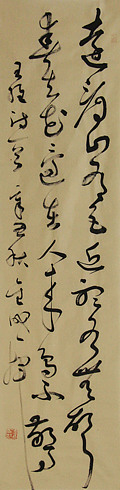 遠看山有色近聽水無聲
春去花還在人來鳥不驚
王維詩 辛丑秋